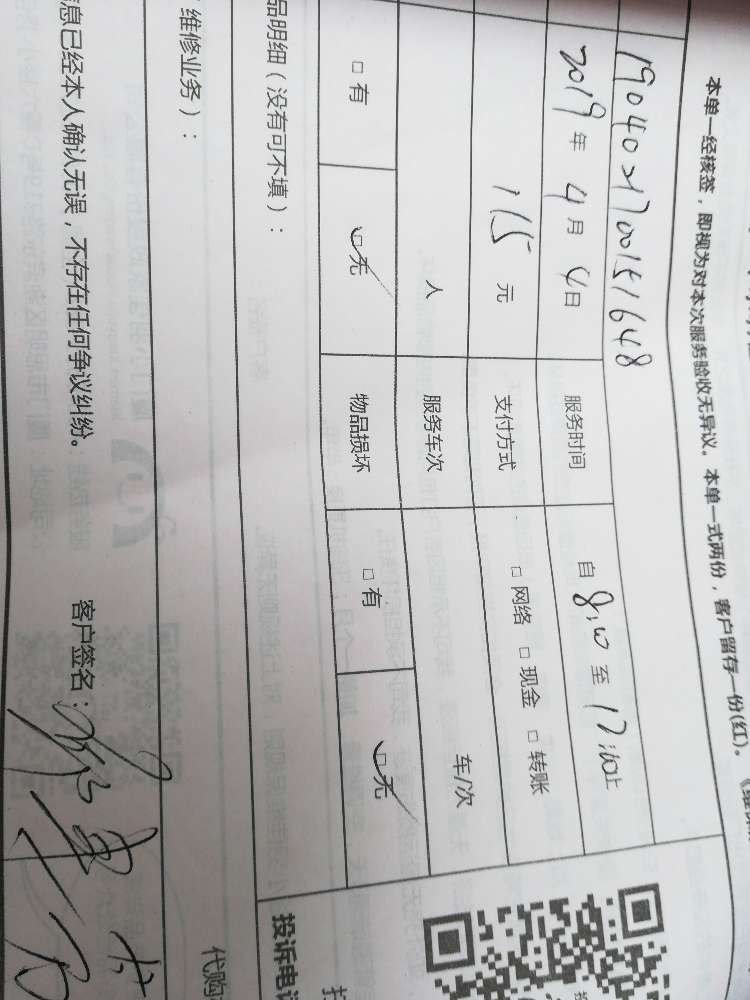 本单一经核签，即视为对本次服务验收无异议。本单一式两份，客户留存一份(红)。
1904021700151648
2019年4月4日 服务时间 自8:00至12:00止
115元 支付方式 □网络 □现金 □转账
人 服务车次 车/次
□有 ☑无 物品损坏 □有 ☑无
品明细（没有可不填）：
维修业务）：
息已经本人确认无误，不存在任何争议纠纷。 客户签名：
投诉电
代购